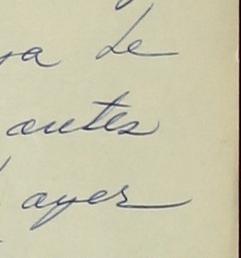 de
antes
ayer